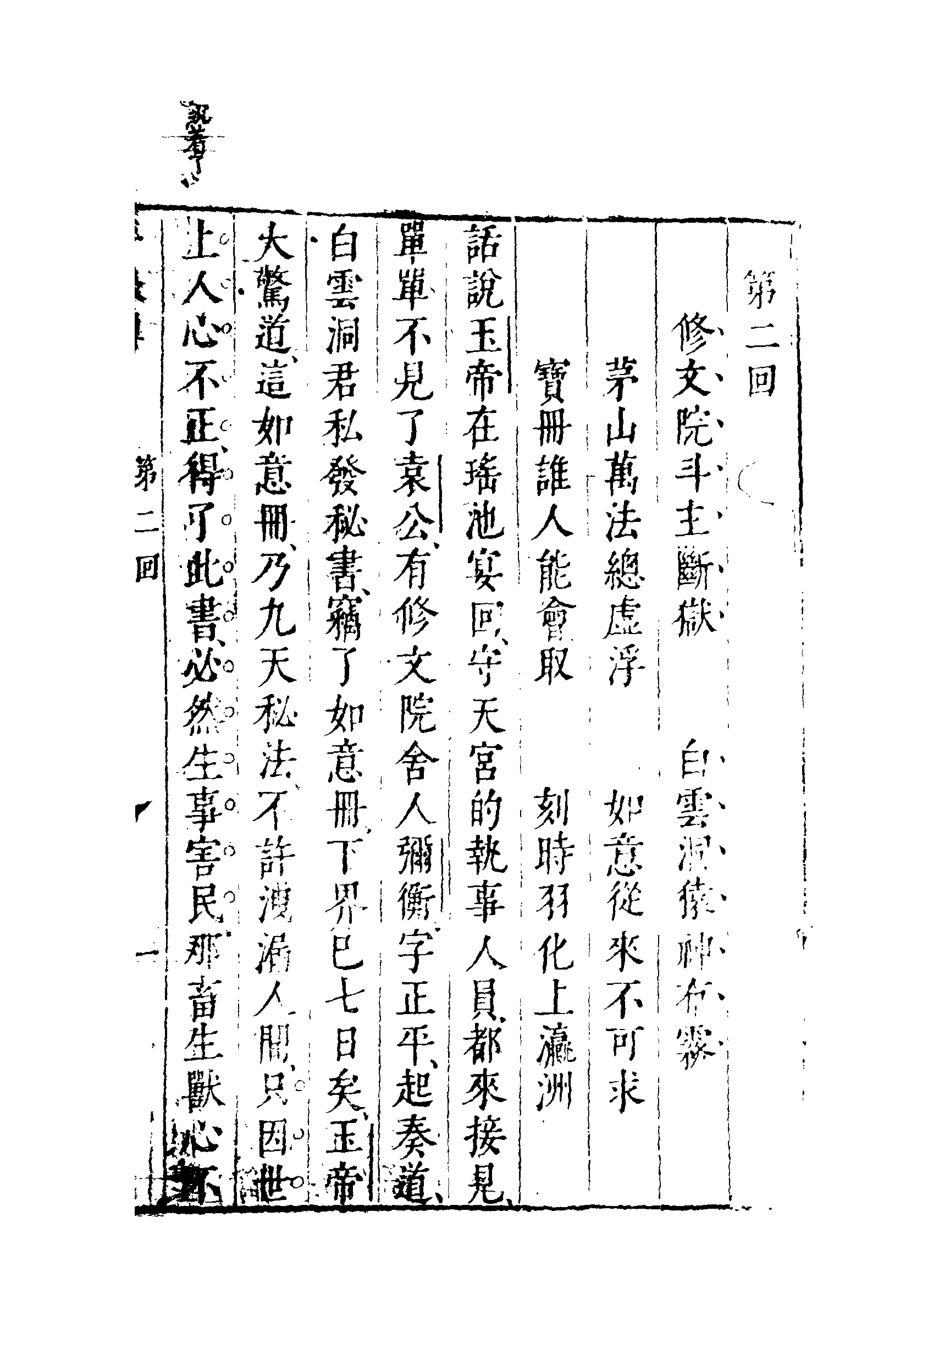 第二回
修文院斗主斷獄　白雲洞猿神布霧
茅山萬法總虛浮　如意從來不可求
寶冊誰人能會取　刻時羽化上瀛洲
話說玉帝在瑤池宴回、守天宮的執事人員、都來接見、
單單不見了袁公、有修文院舍人彌衡、字正平、起奏道、
白雲洞君私發秘書、竊了如意冊、下界巳七日矣、玉帝
大驚道、這如意冊、乃九天秘法、不許洩漏人間、只因世
上人心不正、得了此書、必然生事害民、那畜生獸心不
第二回
一
說着了